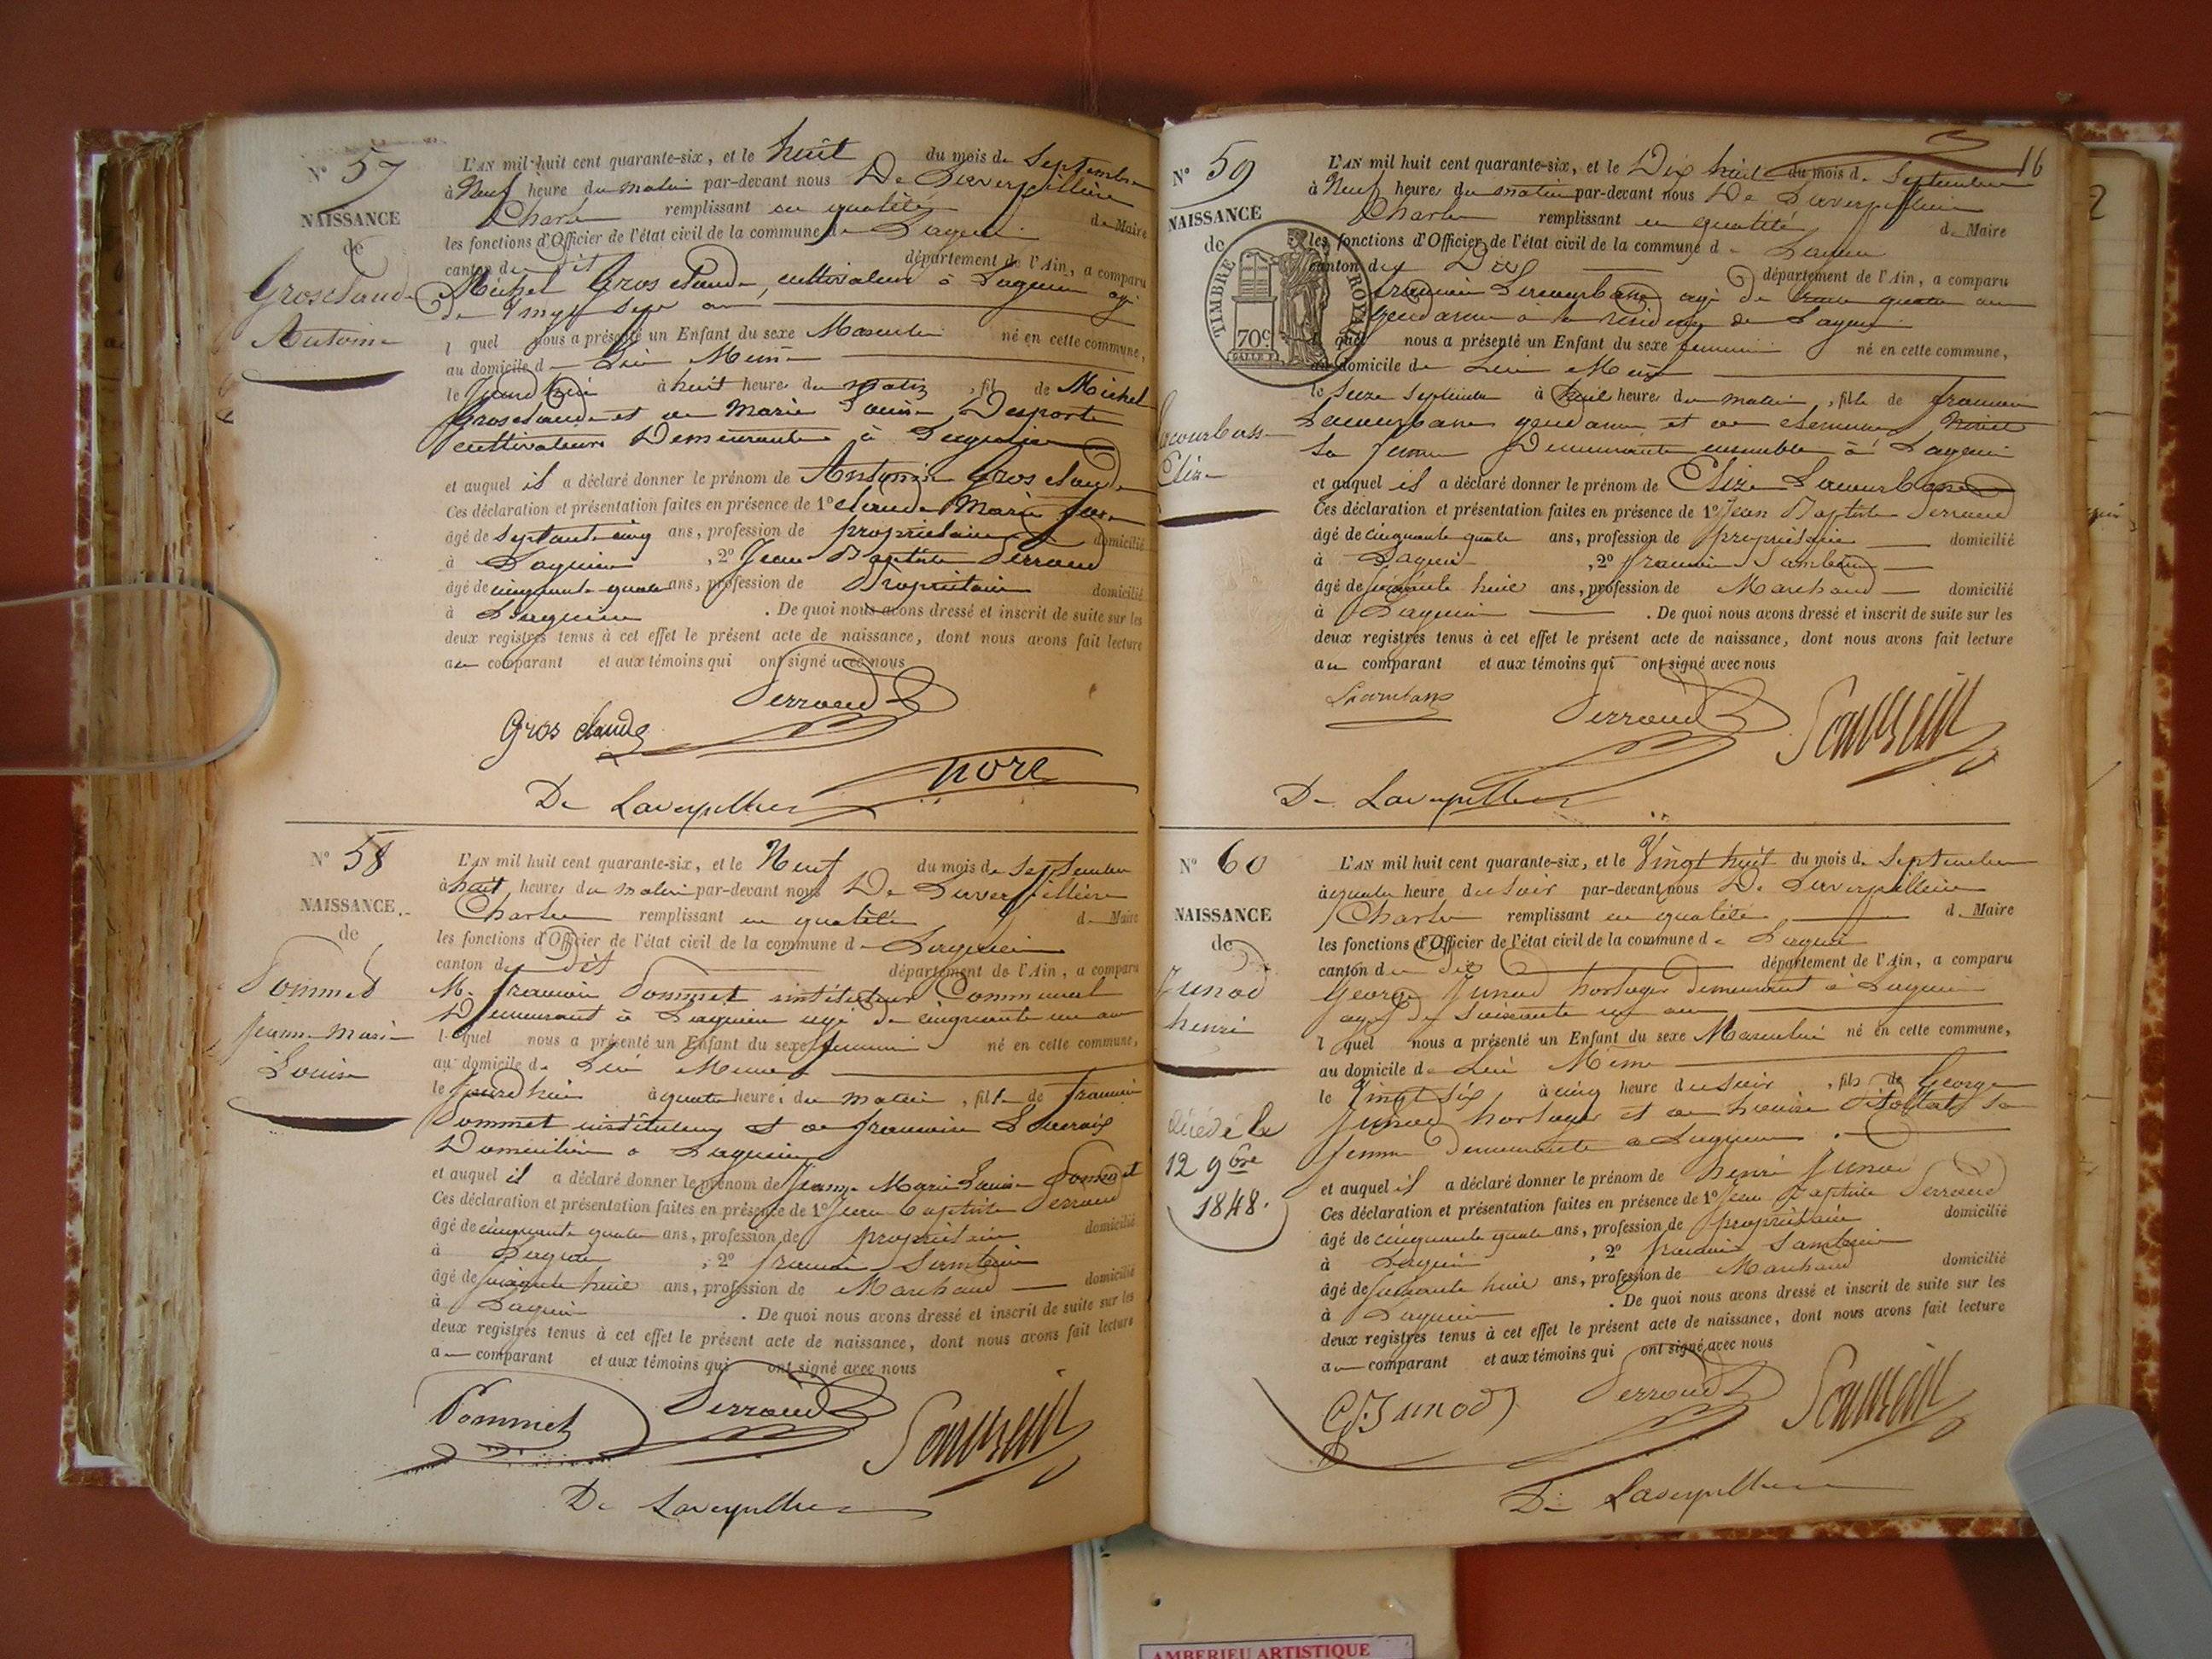 N° 57
NAISSANCE
de
Grosclaude
Antoine
L'AN mil huit cent quarante-six, et le huit du mois de Septembre
à Neuf heure du matin par-devant nous De Laverpillière
Charles remplissant en qualité de Maire
les fonctions d'Officier de l'état civil de la commune de Lagnieu
canton de dit département de l'Ain, a comparu
Michel Grosclaude, cultivateur à Lagnieu agé
de vingt sept ans
lequel nous a présenté un Enfant du sexe Masculin né en cette commune,
au domicile de Lui Même
le jourdhui à huit heure du matin, fils de Michel
Grosclaude et de Marie Louise Desporte
cultivateurs Demeurants à Lagnieu
et auquel il a déclaré donner le prénom de Antoine Grosclaude
Ces déclaration et présentation faites en présence de 1° Claude Marie
âgé de septante cinq ans, profession de propriétaire domicilié
à Lagnieu, 2° Jean Baptiste Perroud
âgé de cinquante quatre ans, profession de Propriétaire domicilié
à Lagnieu. De quoi nous avons dressé et inscrit de suite sur les
deux registres tenus à cet effet le présent acte de naissance, dont nous avons fait lecture
au comparant et aux témoins qui ont signé avec nous
Perroud
Gros claude
De Laverpillière
N° 58
NAISSANCE
de
Pommet
Jeanne Marie
Louise
L'AN mil huit cent quarante-six, et le Neuf du mois de Septembre
à huit heures du matin par-devant nous De Laverpillière
Charles remplissant en qualité de Maire
les fonctions d'Officier de l'état civil de la commune de Lagnieu
canton de dit département de l'Ain, a comparu
M. françois Pommet instituteur Communal
Demeurant à Lagnieu agé de cinquante un ans
lequel nous a présenté un Enfant du sexe feminin né en cette commune,
au domicile de Lui Même
le jourdhui à quatre heures du matin, fille de françois
Pommet instituteur et de françoise Lacroix
Domiciliés à Lagnieu
et auquel il a déclaré donner le prénom de Jeanne Marie Louise Pommet
Ces déclaration et présentation faites en présence de 1° Jean Baptiste Perroud
âgé de cinquante quatre ans, profession de propriétaire domicilié
à Lagnieu, 2° françois
âgé de huit ans, profession de Marchand domicilié
à Lagnieu. De quoi nous avons dressé et inscrit de suite sur les
deux registres tenus à cet effet le présent acte de naissance, dont nous avons fait lecture
au comparant et aux témoins qui ont signé avec nous
Pommet Perroud
De Laverpillière
16
N° 59
NAISSANCE
de
Elize
TIMBRE ROYAL
70c
L'AN mil huit cent quarante-six, et le Dix huit du mois de Septembre
à Neuf heures du matin par-devant nous De Laverpillière
Charles remplissant en qualité de Maire
les fonctions d'Officier de l'état civil de la commune de Lagnieu
canton de Dit département de l'Ain, a comparu
françois agé de trente quatre ans
gendarme à la résidence de Lagnieu
lequel nous a présenté un Enfant du sexe feminin né en cette commune,
au domicile de Lui Même
le seize Septembre à huit heures du matin, fille de françois
gendarme et de
sa femme Demeurants ensemble à Lagnieu
et auquel il a déclaré donner le prénom de Elize
Ces déclaration et présentation faites en présence de 1° Jean Baptiste Perroud
âgé de cinquante quatre ans, profession de propriétaire domicilié
à Lagnieu, 2° françois
âgé de huit ans, profession de Marchand domicilié
à Lagnieu. De quoi nous avons dressé et inscrit de suite sur les
deux registres tenus à cet effet le présent acte de naissance, dont nous avons fait lecture
au comparant et aux témoins qui ont signé avec nous
Perroud
De Laverpillière
N° 60
NAISSANCE
de
Junod
henri
décédé le
12 9bre
1848.
L'AN mil huit cent quarante-six, et le Vingt huit du mois de Septembre
à quatre heure du soir par-devant nous De Laverpillière
Charles remplissant en qualité de Maire
les fonctions d'Officier de l'état civil de la commune de Lagnieu
canton du dit département de l'Ain, a comparu
George Junod horloger demeurant à Lagnieu
agé de soixante un ans
lequel nous a présenté un Enfant du sexe Masculin né en cette commune,
au domicile de Lui Même
le Vingt six à cinq heure du soir, fils de George
Junod horloger et de sa
femme Demeurants à Lagnieu
et auquel il a déclaré donner le prénom de henri Junod
Ces déclaration et présentation faites en présence de 1° Jean Baptiste Perroud
âgé de cinquante quatre ans, profession de propriétaire domicilié
à Lagnieu, 2° françois
âgé de huit ans, profession de Marchand domicilié
à Lagnieu. De quoi nous avons dressé et inscrit de suite sur les
deux registres tenus à cet effet le présent acte de naissance, dont nous avons fait lecture
au comparant et aux témoins qui ont signé avec nous
Junod Perroud
De Laverpillière
AMBERIEU ARTISTIQUE